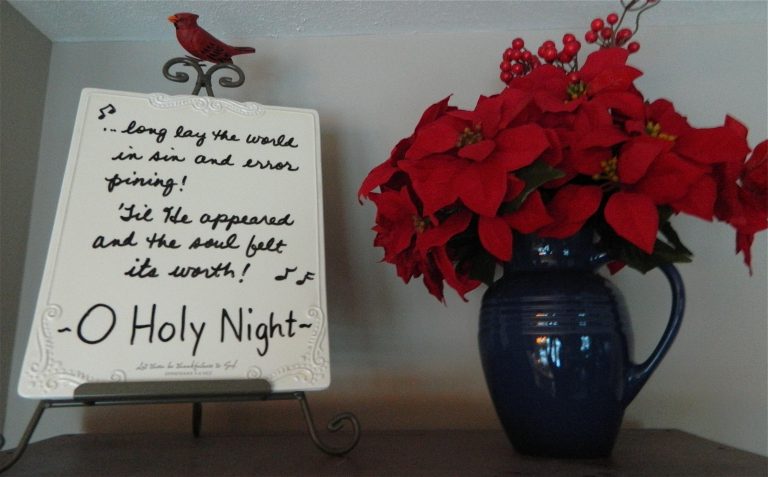 ... long lay the world
in sin and error
pining!
'Til He appeared
and the soul felt
its worth!
~O Holy Night~
Let there be thankfulness to God.